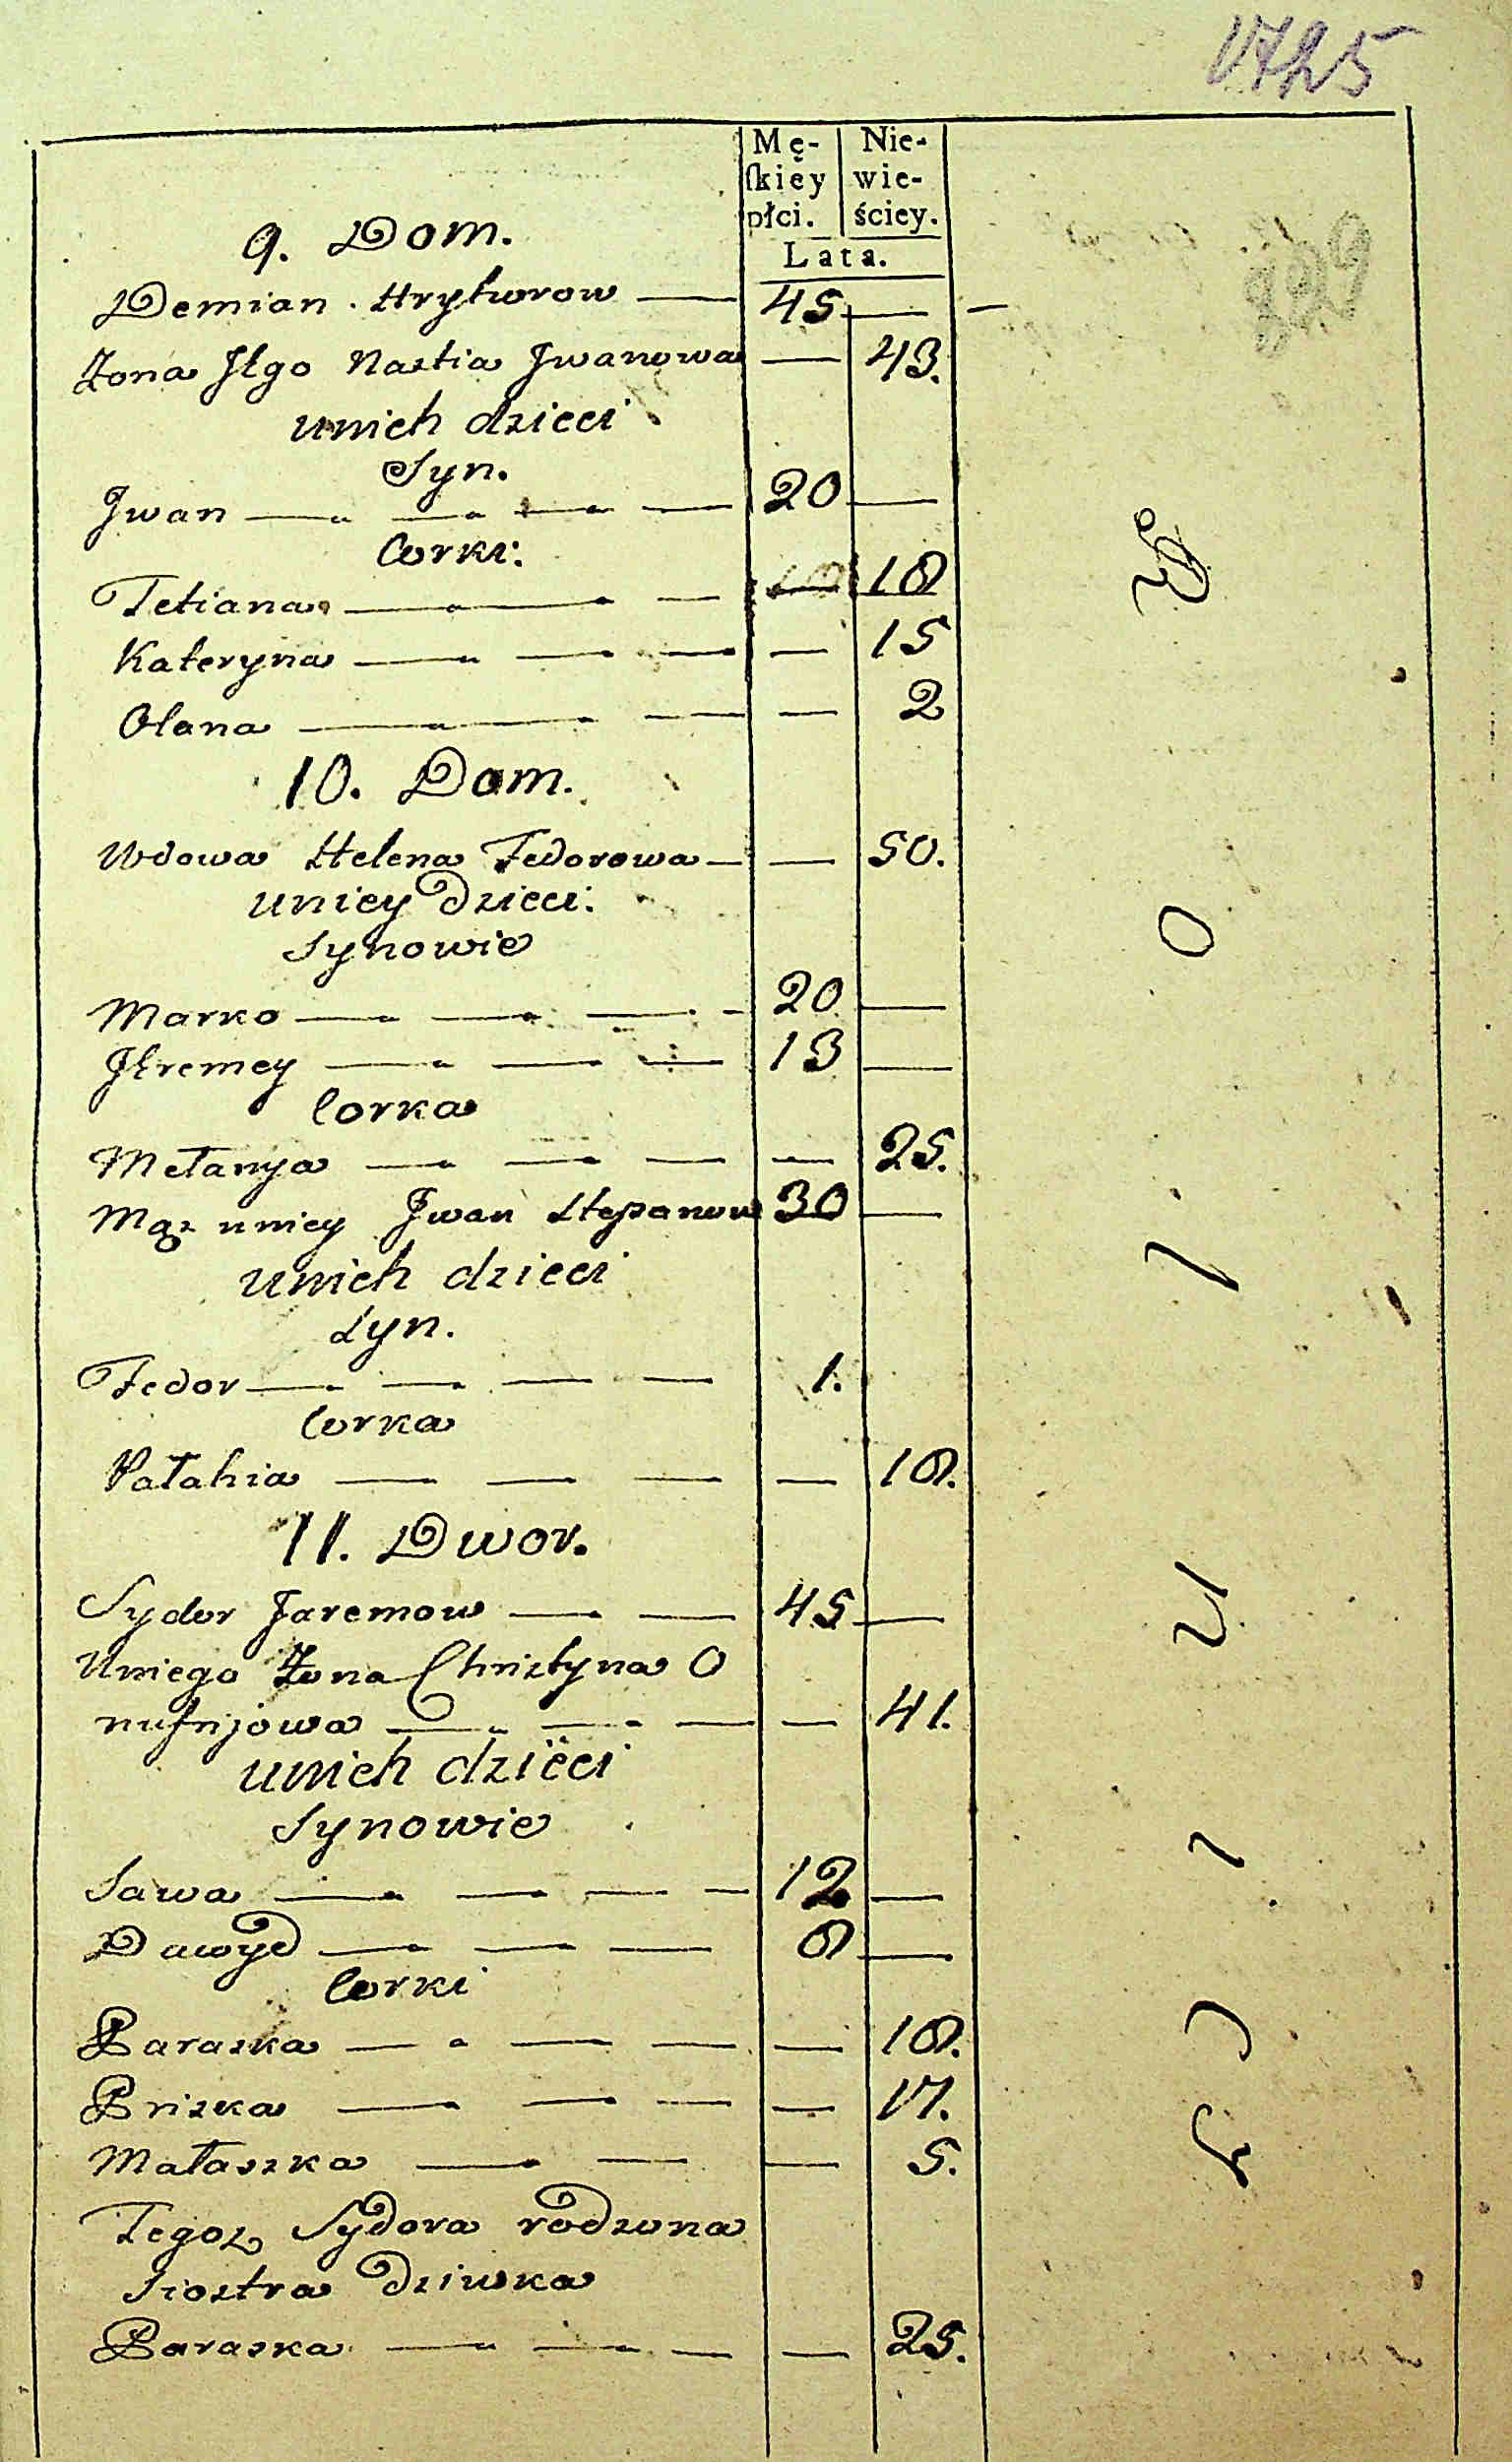 1725
Mę- Nie-
ſkiey wie-
płci. ściey.
Lata.
9. Dom.
Demian Hryhorow — 45 — —
Żona Jego Nastia Jwanowa — 43.
unich dzieci
Syn.
Jwan — — — — 20 —
Corki:
Tetiana — — — 18
Kateryna — — — — 15
Olana — — — 2
10. Dom.
Wdowa Helena Fedorowa — — 50.
uniey Dzieci:
Synowie
Marko — — — - 20 —
Jeremey — — — 13 —
Corka
Mełanya — — — — 25.
Mąz uniey Jwan Stepanow 30 —
unich dzieci
Syn.
Fedor — — — — 1.
Corka
Pałahia — — — — 18.
11. Dwor.
Sydor Jaremow — — 45 —
Uniego Żona Christyna O
nufrijowa — — — — 41.
unich dzieci
Synowie
Sawa — — — — 12 —
Dawyd — — — 8 —
Corki
Paraska — — — — 18.
Priska — — — — 17.
Małaszka — — — 5.
Tegoż Sydora rodzona
Siostra Dziwka
Paraska — — — — 25.